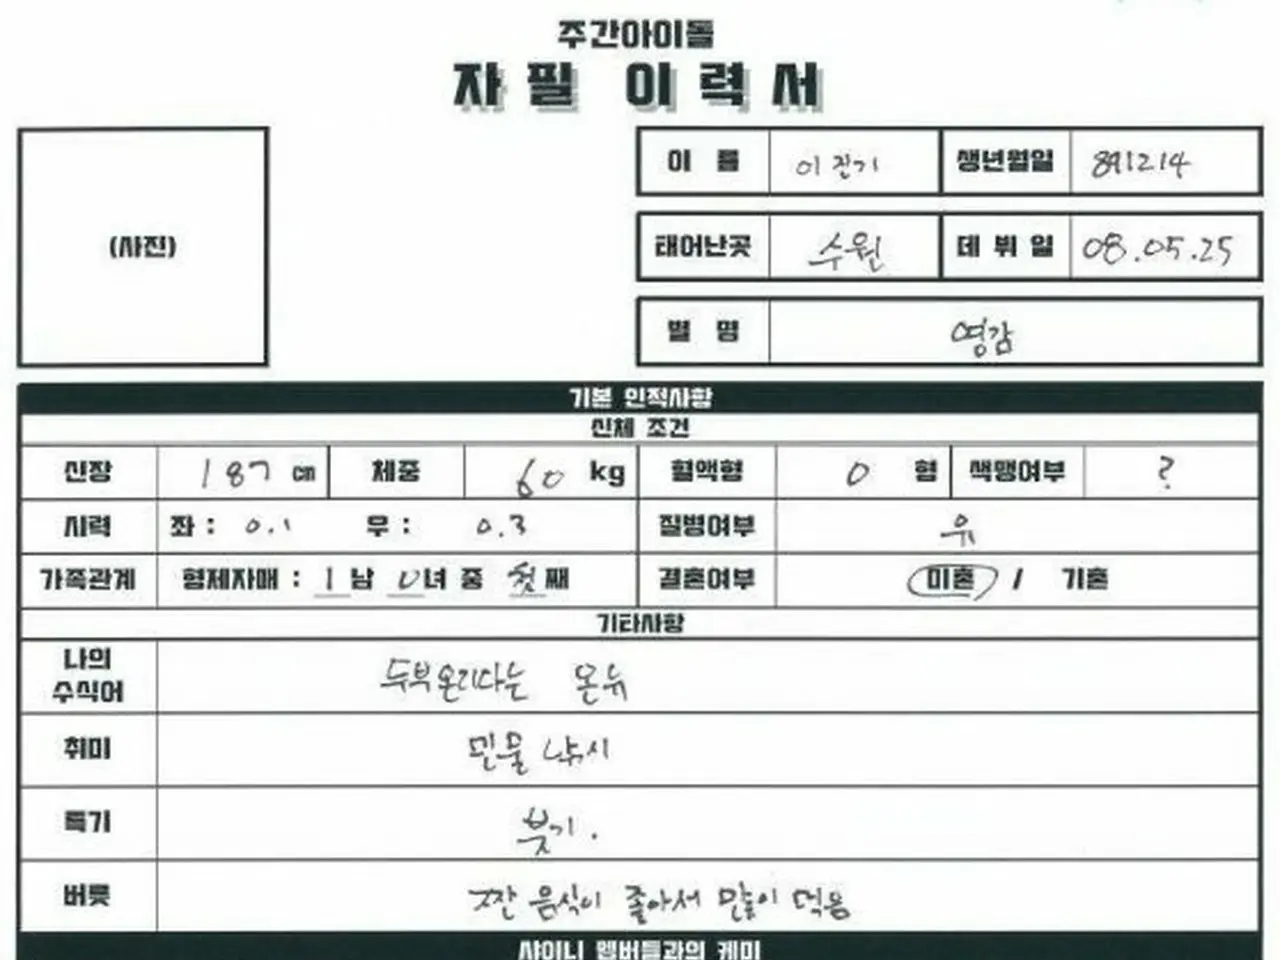 주간아이돌
자필 이력서
(사진)
이 름 이진기 생년월일 891214
태어난곳 수원 데뷔일 08.05.25
별 명 영감
기본 인적사항
신체 조건
신장 187 cm 체중 60 kg 혈액형 O 형 색맹여부 ?
시력 좌 : 0.1 우 : 0.3 질병여부 유
가족관계 형제자매 : 1 남 0 녀 중 첫 째 결혼여부 미혼 / 기혼
기타사항
나의
수식어 두부 온리다는 온유
취미 민물 낚시
특기 붓기.
버릇 짠 음식이 좋아서 많이 먹음
샤이니 멤버들과의 케미